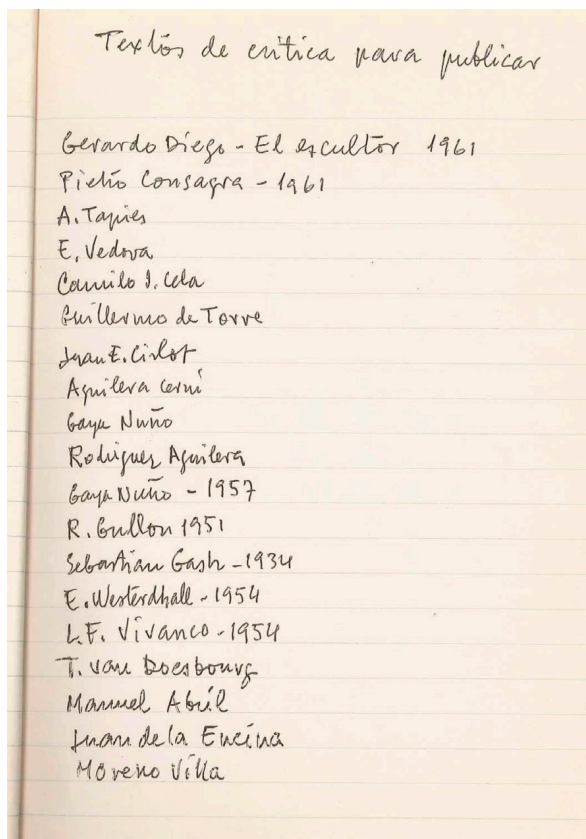 Textos de critica para publicar
Gerardo Diego - El escultor 1961
Pietro Consagra - 1961
A. Tapies
E. Vedova
Camilo J. Cela
Guillermo de Torre
Juan E. Cirlot
Aguilera Cerni
Gaya Nuño
Rodriguez Aguilera
Gaya Nuño - 1957
R. Gullon 1951
Sebastian Gash - 1934
E. Westerdhall - 1954
L.F. Vivanco - 1954
T. van Doesbourg
Manuel Abril
Juan de la Encina
Moreno Villa